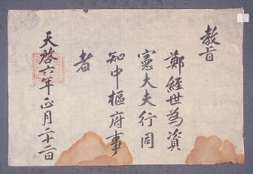 教旨
鄭經世為資
憲大夫行同
知中樞府事
者
天啓六年正月二十二日